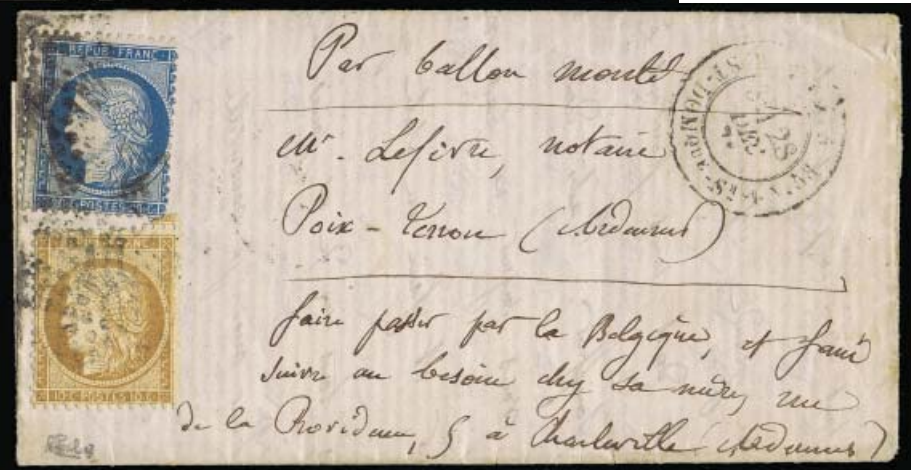 REPUB FRANC
20 C POSTES 20 C
10 C POSTES 10 C
Par ballon monté
Mr. Lefèvre, notaire
Poix-Terron (Ardennes)
faire passer par la Belgique, et faire
suivre au besoin chez sa mère, rue
de la Providence, 5 à Charleville (Ardennes)
28
DEC.